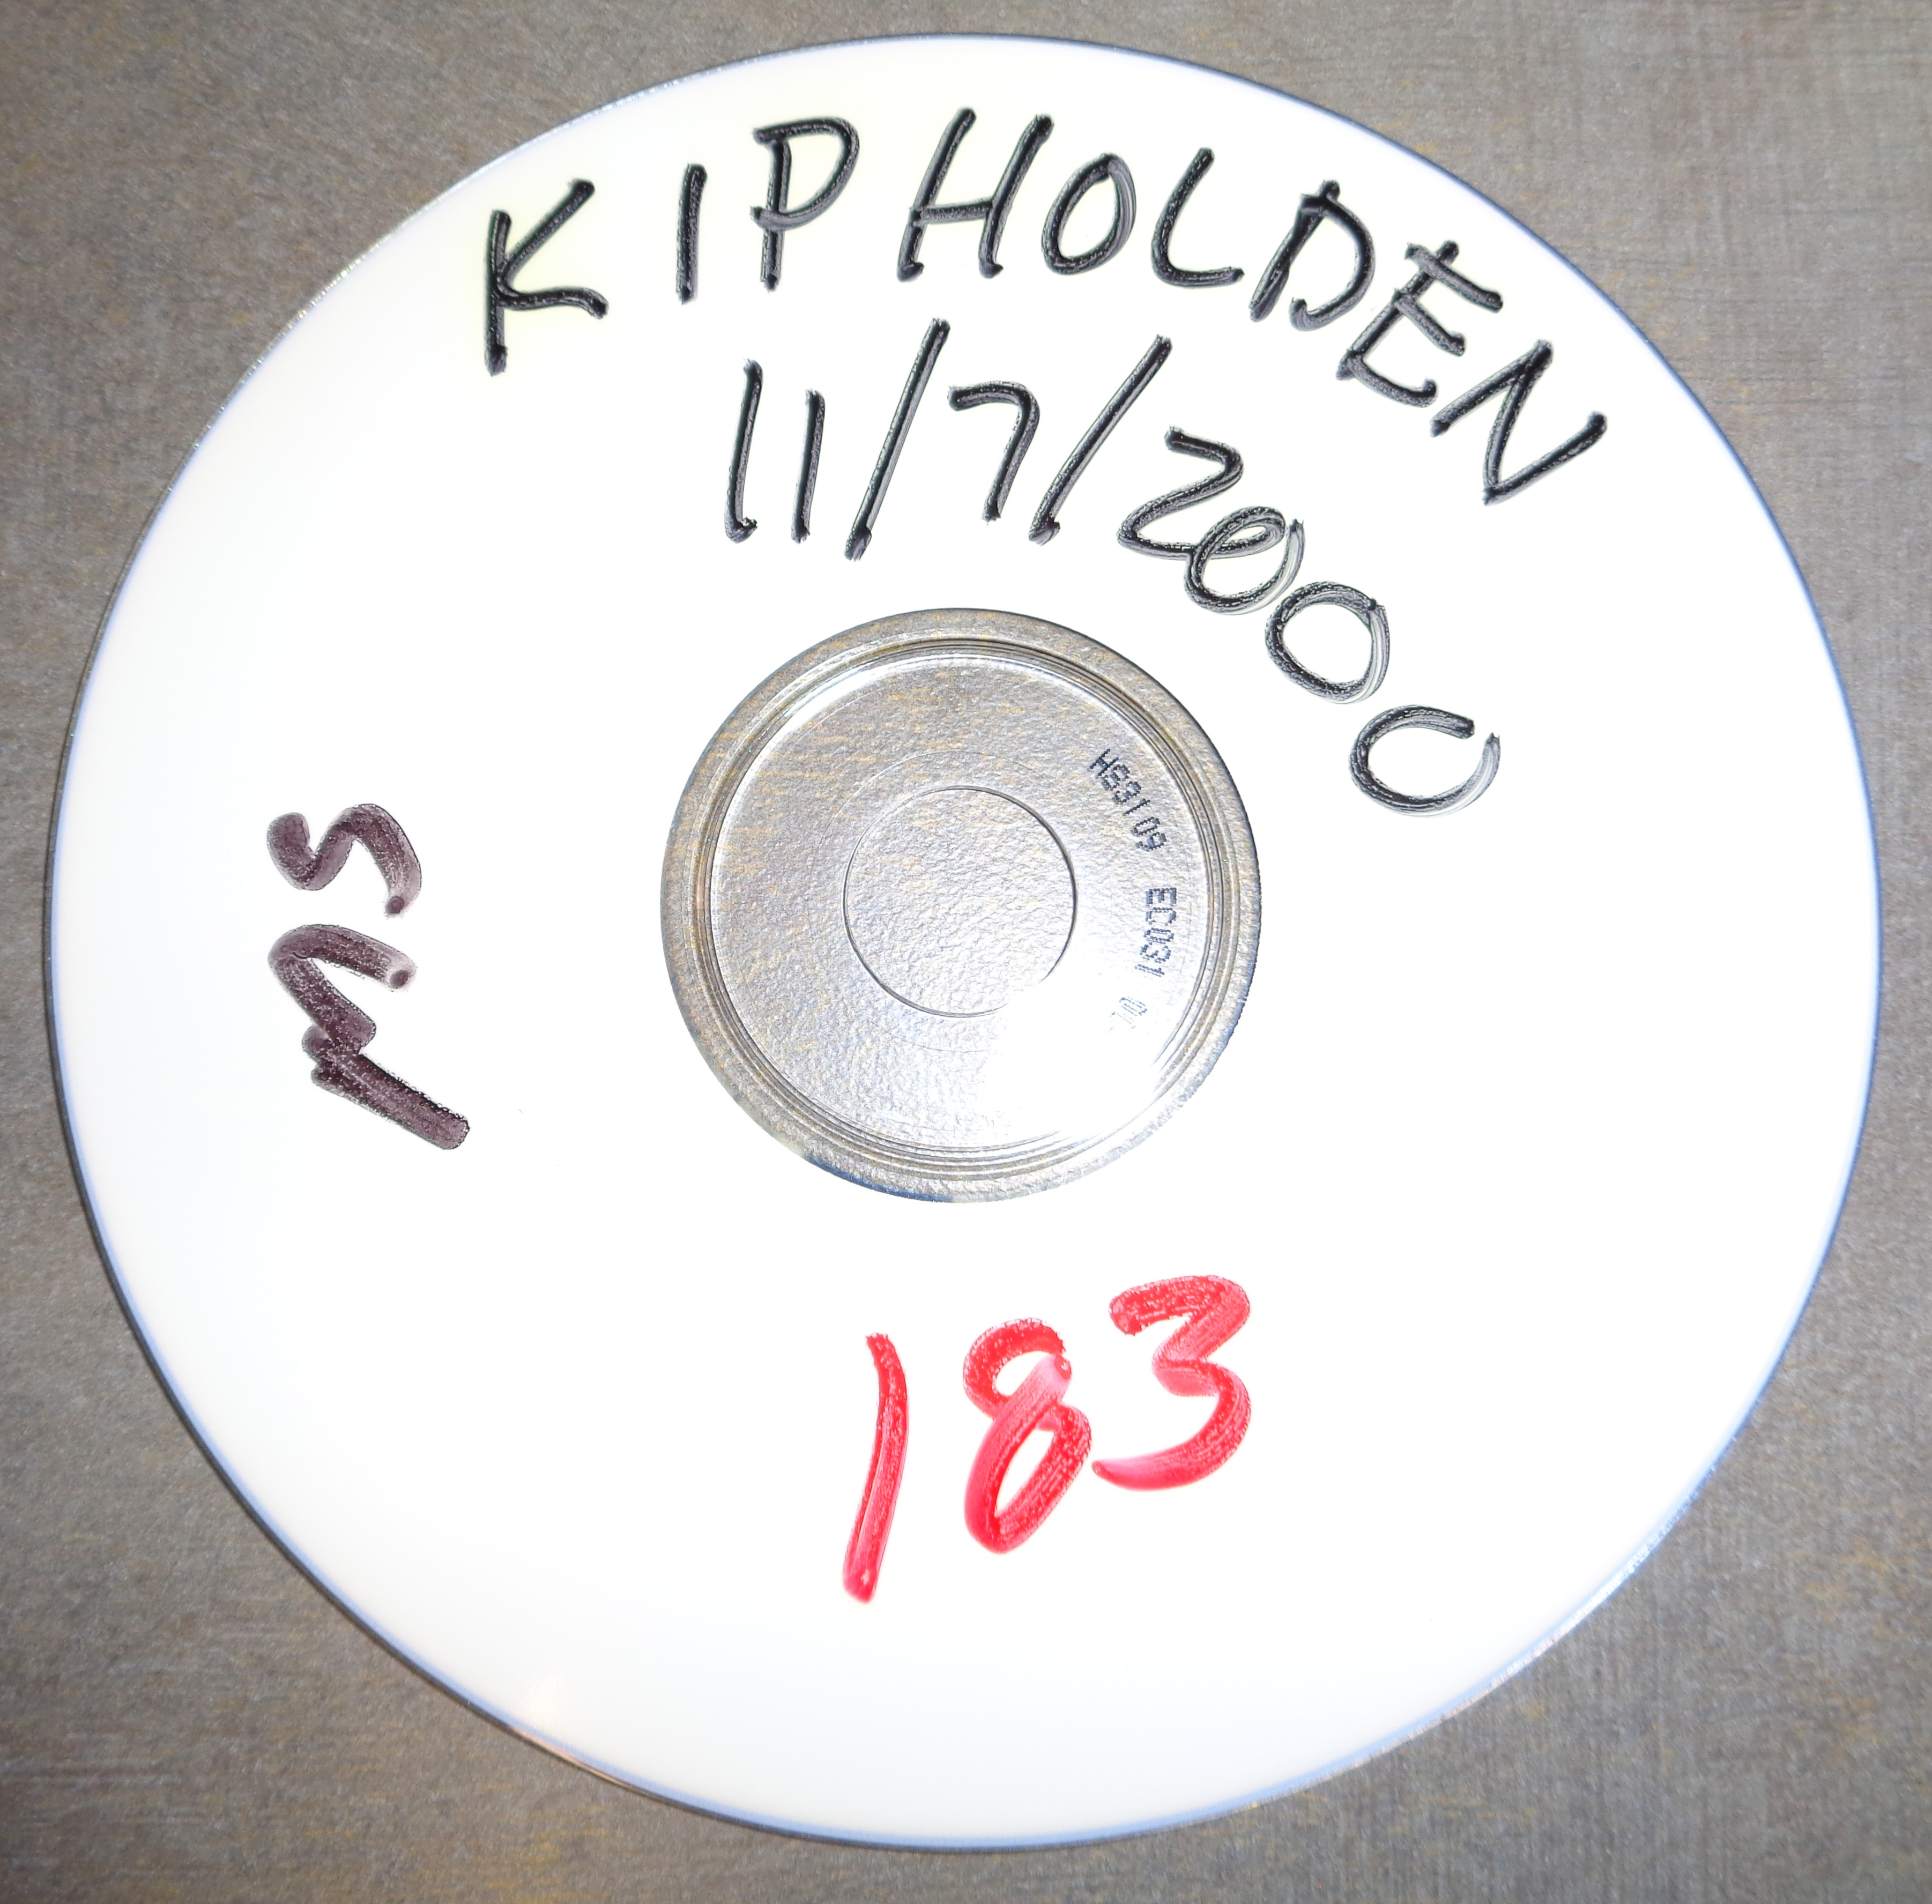 KIP HOLDEN
11/7/2000
MS
H83109 EC031
183